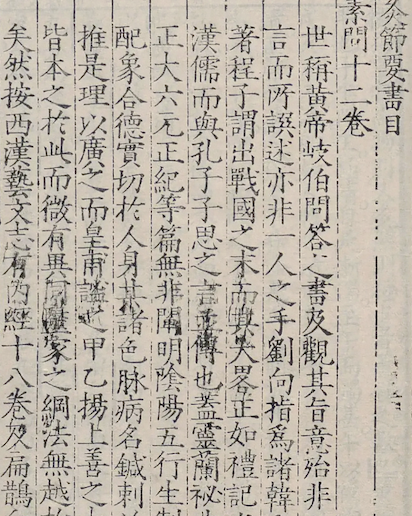 灸節要書目
素問十二卷
世稱黃帝岐伯問答之書及觀其旨意殆非
言而所譔述亦非一人之手劉向指爲諸韓
著程子謂出戰國之末而其大畧正如禮記
漢儒而與孔子子思之言並傳也蓋靈蘭祕
正大六元正紀等篇無非闡明陰陽五行生
配象合德實切於人身其諸色脉病名鍼刺
推是理以廣之而皇甫謐之甲乙揚上善之
皆本之於此而微有異同醫家之綱法無越
矣然按西漢藝文志有內經十八卷及扁鵲